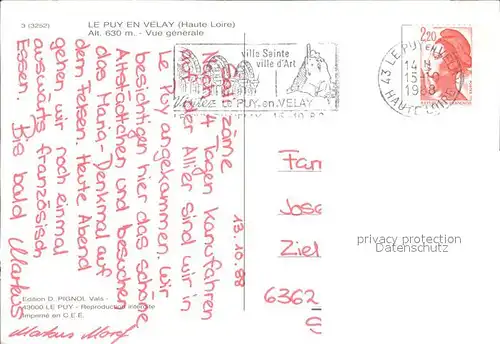 D (3252)
LE PUY EN VELAY (Haute Loire)
Alt. 630 m. - Vue générale
ville Sainte
ville d'Art
2,20
43 LE PUY EN VELAY
14 H
15-10
1988
HAUTE LOIRE
13.10.88
Salü zäme
Nach 4 Tagen Kanufahren
auf der Allier sind wir in
Le Puy angekommen. Wir
besichtigen hier das schöne
Altstädtchen und besuchen
das Maria-Denkmal auf
dem Felsen. Heute Abend
gehen wir noch einmal
auswärts französisch
Essen. Bis bald Markus
Fam
Jose
Ziel
6362
S
privacy protection
Datenschutz
Edition D. PIGNOL Vals -
43000 LE PUY - Reproduction interdite
Imprimé en C.E.E.